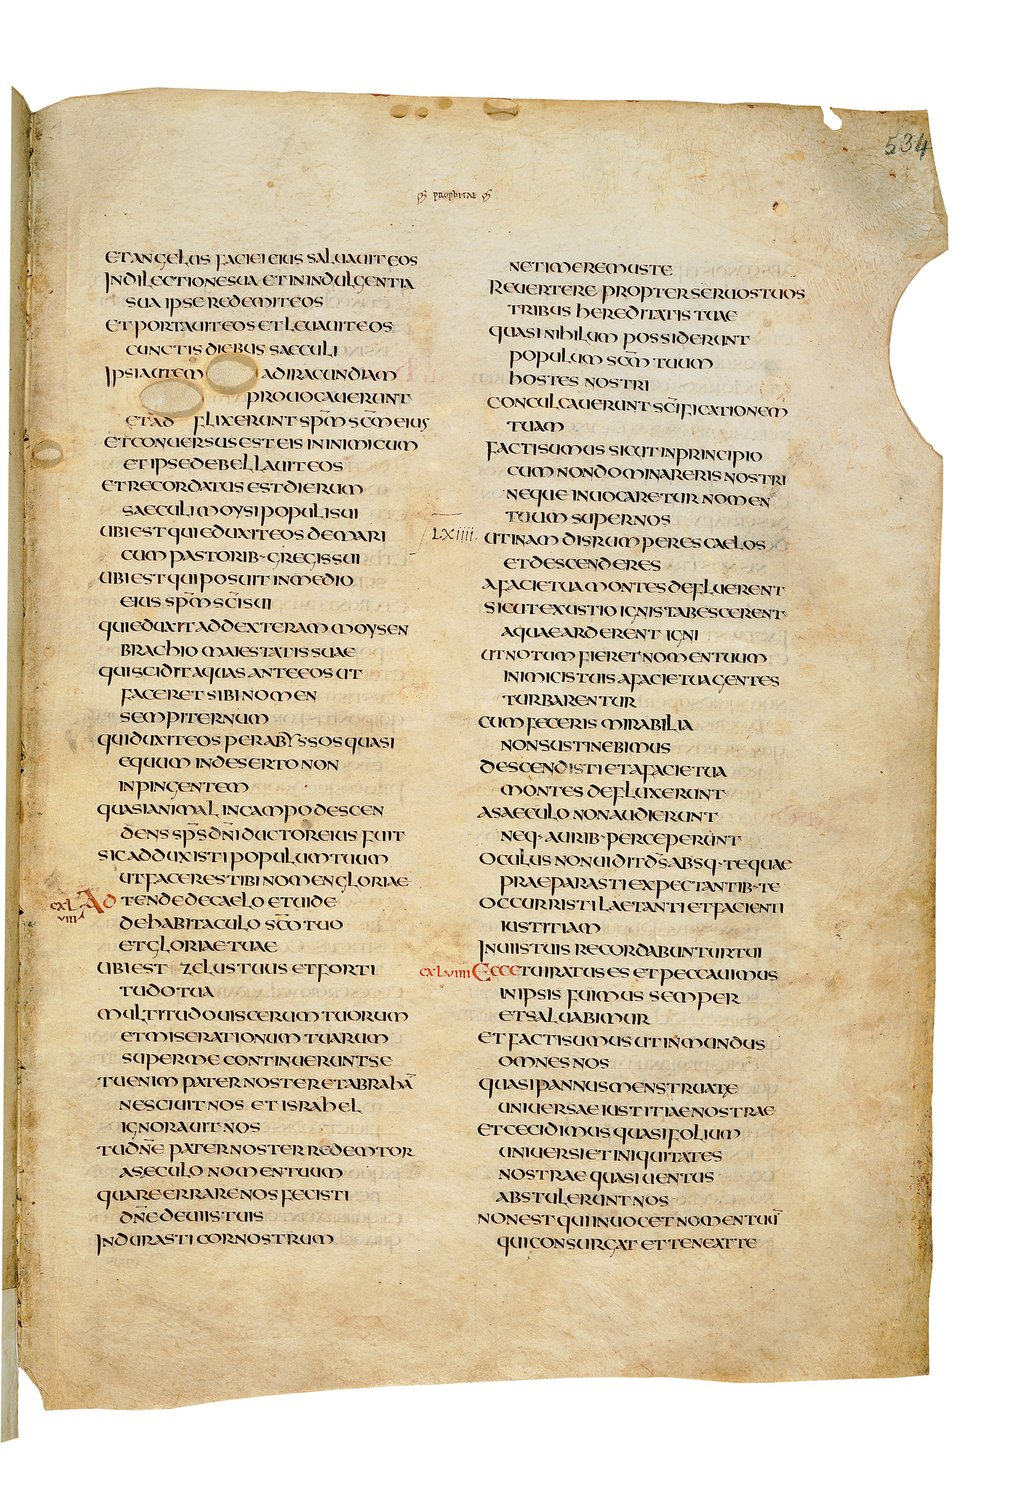 534
PROPHETAE
ETANGELUS FACIEI EIUS SALUAUIT EOS
IN DILECTIONE SUA ET IN INDULGENTIA
SUA IPSE REDEMIT EOS
ET PORTAUIT EOS ET LEUAUIT EOS
CUNCTIS DIEBUS SAECULI
IPSI AUTEM AD IRACUNDIAM
PROUOCAUERUNT
ET AD FLIXERUNT SP̄M SC̄M EIUS
ET CONUERSUS EST EIS IN INIMICUM
ET IPSE DEBELLAUIT EOS
ET RECORDATUS EST DIERUM
SAECULI MOYSI POPULI SUI
UBI EST QUI EDUXIT EOS DE MARI
CUM PASTORIB· GREGIS SUI
UBI EST QUI POSUIT IN MEDIO
EIUS SP̄M SC̄I SUI
QUI EDUXIT AD DEXTERAM MOYSEN
BRACHIO MAIESTATIS SUAE
QUI SCIDIT AQUAS ANTE EOS UT
FACERET SIBI NOMEN
SEMPITERNUM
QUI DUXIT EOS PER ABYSSOS QUASI
EQUUM IN DESERTO NON
INPINGENTEM
QUASI ANIMAL IN CAMPO DESCEN
DENS SP̄S DN̄I DUCTOR EIUS FUIT
SIC ADDUXISTI POPULUM TUUM
UT FACERES TIBI NOMEN GLORIAE
CXL VIII ADTENDE DE CAELO ET UIDE
DE HABITACULO SC̄O TUO
ET GLORIAE TUAE
UBI EST ZELUS TUUS ET FORTI
TUDO TUA
MULTITUDO UISCERUM TUORUM
ET MISERATIONUM TUARUM
SUPER ME CONTINUERUNT SE
TU ENIM PATER NOSTER ET ABRAHĀ
NESCIUIT NOS ET ISRAHEL
IGNORAUIT NOS
TU DN̄E PATER NOSTER REDEMTOR
A SECULO NOMEN TUUM
QUARE ERRARE NOS FECISTI
DN̄E DE UIIS TUIS
INDURASTI COR NOSTRUM
NE TIMEREMUS TE
REUERTERE PROPTER SERUOS TUOS
TRIBUS HEREDITATIS TUAE
QUASI NIHILUM POSSIDERUNT
POPULUM SC̄M TUUM
HOSTES NOSTRI
CONCULCAUERUNT SC̄IFICATIONEM
TUAM
FACTI SUMUS SICUT IN PRINCIPIO
CUM NON DOMINARERIS NOSTRI
NEQUE INUOCARETUR NOMEN
TUUM SUPER NOS
LXIIII. UTINAM DISRUMPERES CAELOS
ET DESCENDERES
A FACIE TUA MONTES DEFLUERENT
SICUT EXUSTIO IGNIS TABESCERENT
AQUAE ARDERENT IGNI
UT NOTUM FIERET NOMEN TUUM
INIMICIS TUIS A FACIE TUA GENTES
TURBARENTUR
CUM FECERIS MIRABILIA
NON SUSTINEBIMUS
DESCENDISTI ET A FACIE TUA
MONTES DEFLUXERUNT
A SAECULO NON AUDIERUNT
NEQ· AURIB· PERCEPERUNT
OCULUS NON UIDIT D̄S ABSQ· TE QUAE
PRAEPARASTI EXPECTANTIB· TE
OCCURRISTI LAETANTI ET FACIENTI
IUSTITIAM
IN UIIS TUIS RECORDABUNTUR TUI
CXLVIIII ECCE TU IRATUS ES ET PECCAUIMUS
IN IPSIS FUIMUS SEMPER
ET SALUABIMUR
ET FACTI SUMUS UT INMUNDUS
OMNES NOS
QUASI PANNUS MENSTRUATAE
UNIUERSAE IUSTITIAE NOSTRAE
ET CECIDIMUS QUASI FOLIUM
UNIUERSI ET INIQUITATES
NOSTRAE QUASI UENTUS
ABSTULERUNT NOS
NON EST QUI INUOCET NOMEN TUŪ
QUI CONSURGAT ET TENEAT TE